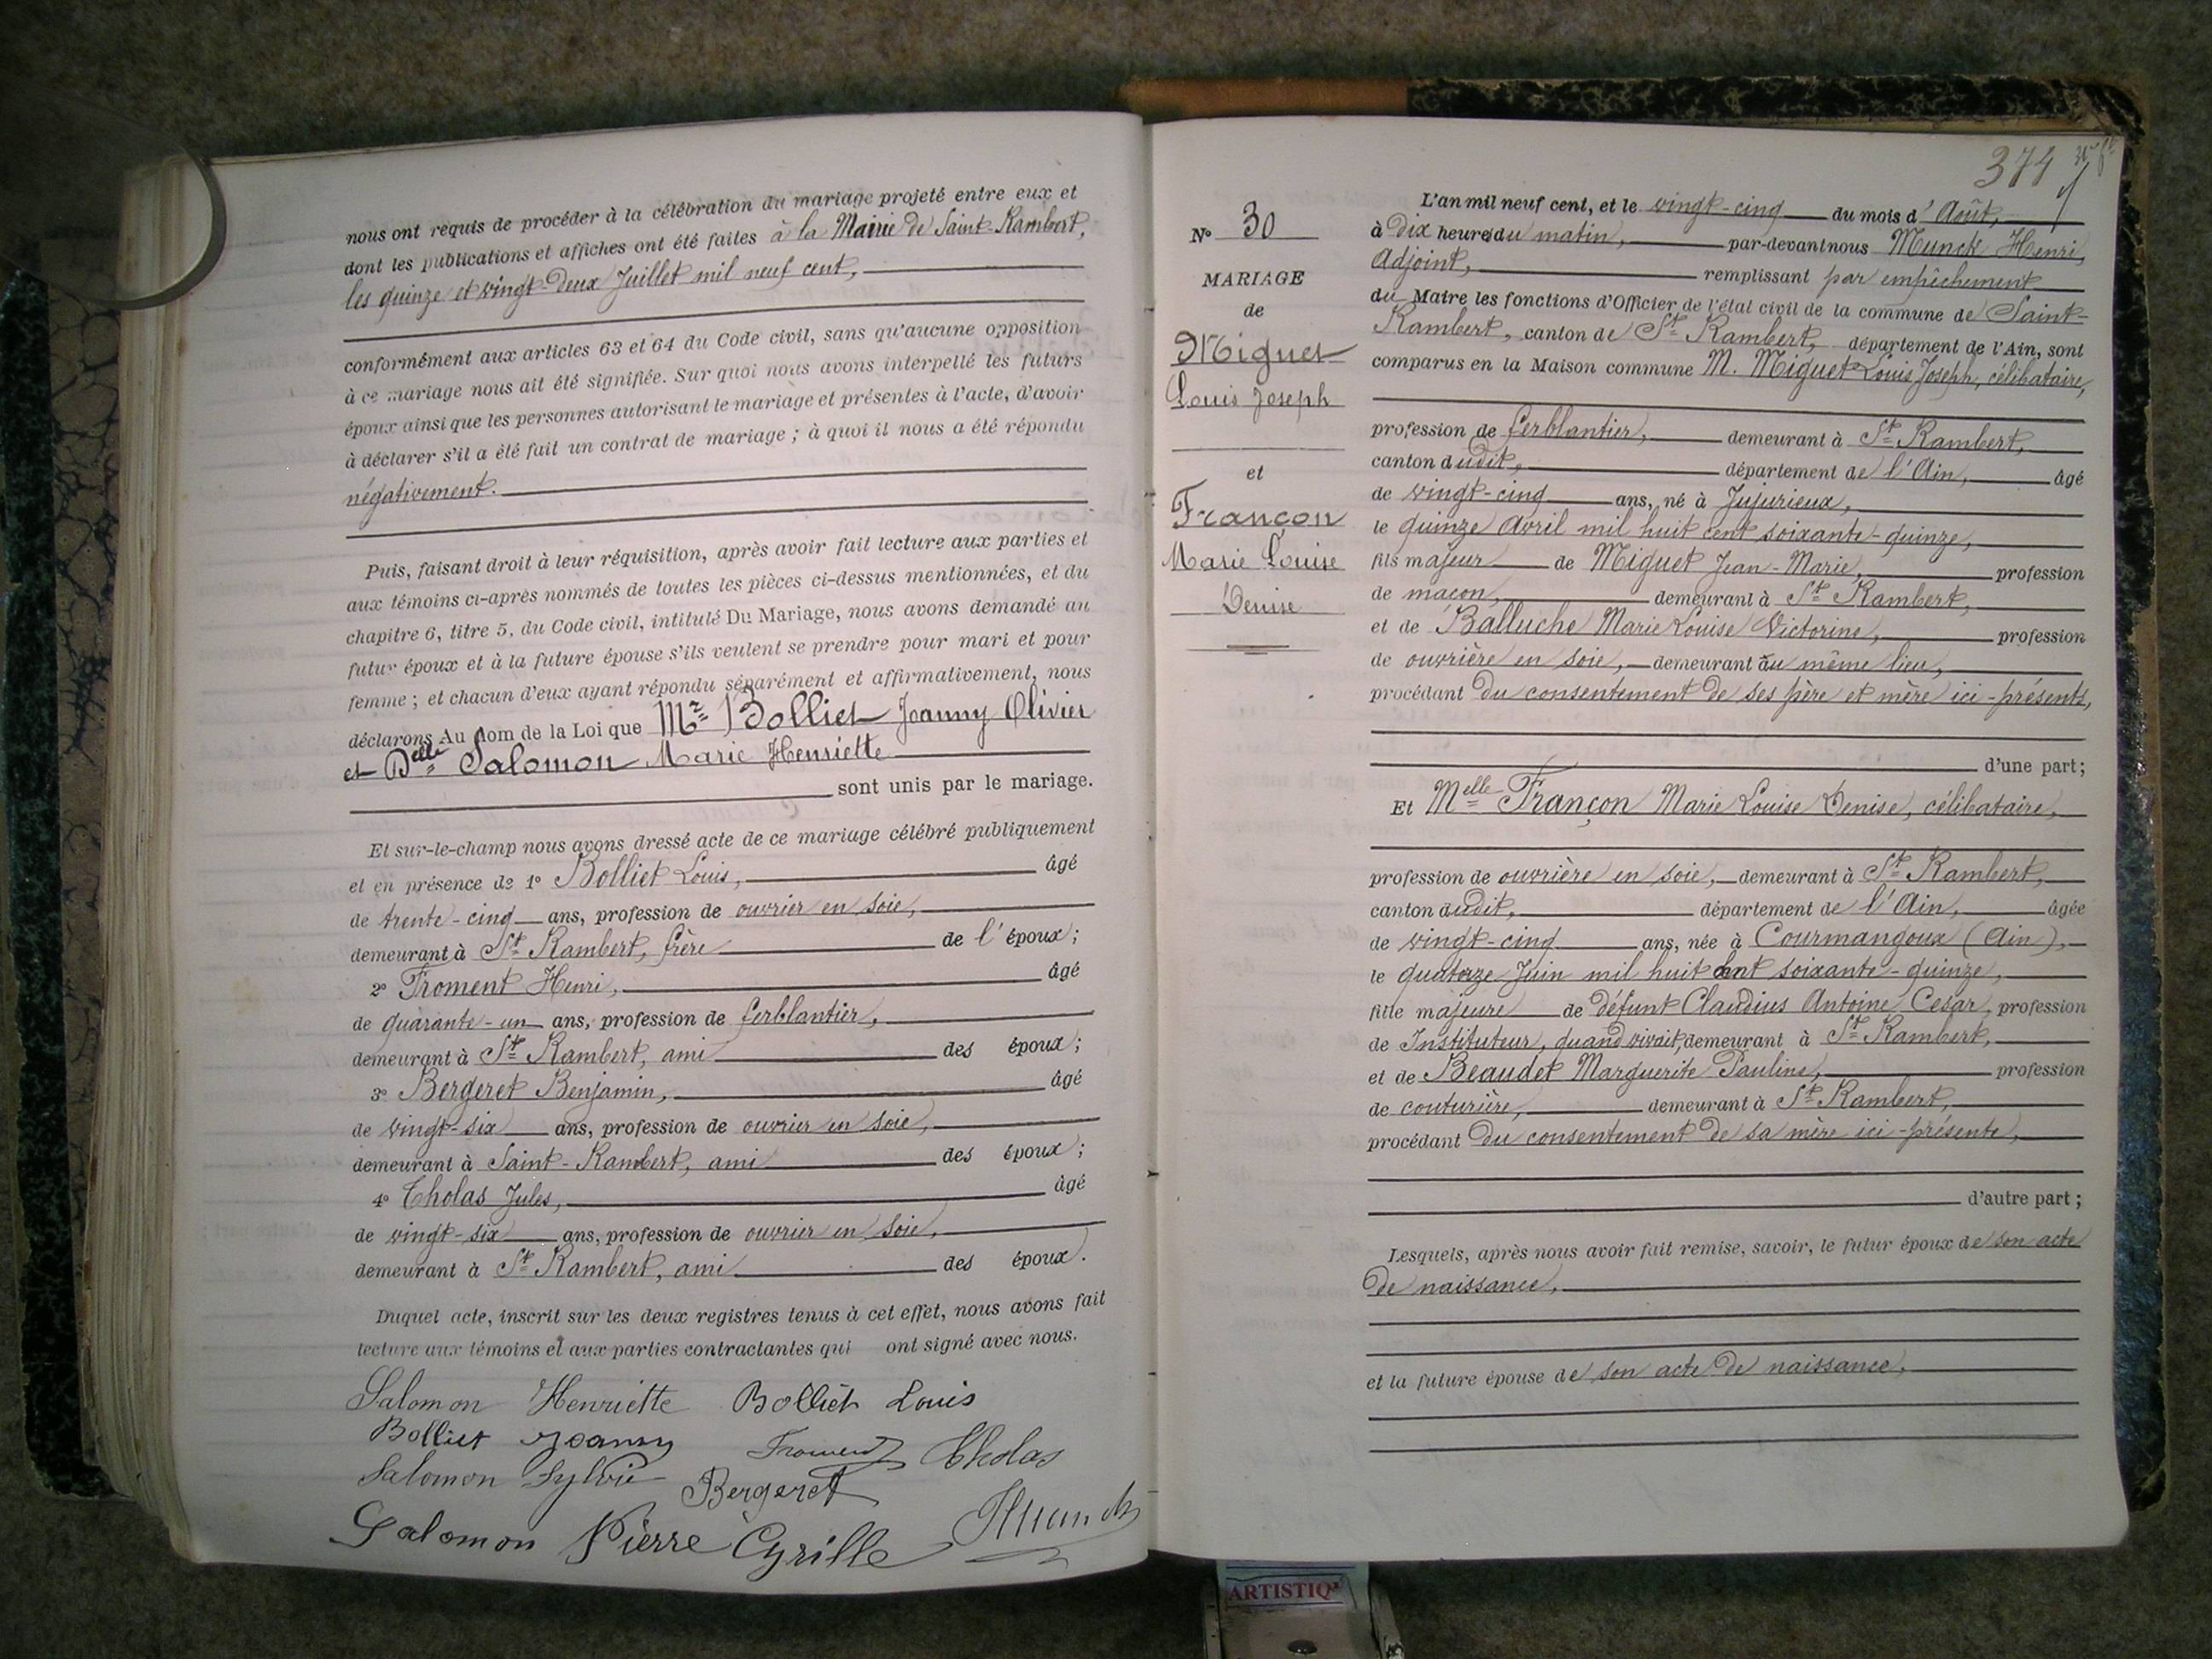 nous ont requis de procéder à la célébration du mariage projeté entre eux et
dont les publications et affiches ont été faites à la Mairie de Saint-Rambert,
les quinze et vingt-deux Juillet mil neuf cent,
conformément aux articles 63 et 64 du Code civil, sans qu'aucune opposition
à ce mariage nous ait été signifiée. Sur quoi nous avons interpellé les futurs
époux ainsi que les personnes autorisant le mariage et présentes à l'acte, d'avoir
à déclarer s'il a été fait un contrat de mariage ; à quoi il nous a été répondu
négativement.
Puis, faisant droit à leur réquisition, après avoir fait lecture aux parties et
aux témoins ci-après nommés de toutes les pièces ci-dessus mentionnées, et du
chapitre 6, titre 5, du Code civil, intitulé Du Mariage, nous avons demandé au
futur époux et à la future épouse s'ils veulent se prendre pour mari et pour
femme ; et chacun d'eux ayant répondu séparément et affirmativement, nous
déclarons Au nom de la Loi que Mr Bolliet Joanny Olivier
et Delle Salomon Marie Henriette
sont unis par le mariage.
Et sur-le-champ nous avons dressé acte de ce mariage célébré publiquement
et en présence de 1° Bolliet Louis, âgé
de trente-cinq ans, profession de ouvrier en soie,
demeurant à St Rambert, frère de l'époux ;
2° Froment Henri, âgé
de quarante-un ans, profession de ferblantier,
demeurant à St Rambert, ami des époux ;
3° Bergeret Benjamin, âgé
de vingt-six ans, profession de ouvrier en soie,
demeurant à Saint-Rambert, ami des époux ;
4° Tholas Jules, âgé
de vingt-six ans, profession de ouvrier en soie,
demeurant à St Rambert, ami des époux.
Duquel acte, inscrit sur les deux registres tenus à cet effet, nous avons fait
lecture aux témoins et aux parties contractantes qui ont signé avec nous.
Salomon Henriette Bolliet Louis
Bolliet Joanny Froment Tholas
Salomon Sylvie Bergeret
Salomon Pierre Cyrille HMunck
374
N° 30
MARIAGE
de
Miguet
Louis Joseph
et
Françon
Marie Louise
Denise
L'an mil neuf cent, et le vingt-cinq du mois d'Août,
à dix heures du matin, par-devant nous Munck Henri,
Adjoint, remplissant par empêchement
du Maire les fonctions d'Officier de l'état civil de la commune de Saint-
Rambert, canton de St Rambert, département de l'Ain, sont
comparus en la Maison commune M. Miguet Louis Joseph, célibataire,
profession de ferblantier, demeurant à St Rambert,
canton dudit, département de l'Ain, âgé
de vingt-cinq ans, né à Jujurieux,
le quinze Avril mil huit cent soixante-quinze,
fils majeur de Miguet Jean-Marie, profession
de maçon, demeurant à St Rambert,
et de Balluche Marie Louise Victorine, profession
de ouvrière en soie, demeurant au même lieu,
procédant du consentement de ses père et mère ici-présents,
d'une part ;
Et Melle Françon Marie Louise Denise, célibataire,
profession de ouvrière en soie, demeurant à St Rambert,
canton dudit, département de l'Ain, âgée
de vingt-cinq ans, née à Courmangoux (Ain),
le quatorze Juin mil huit cent soixante-quinze,
fille majeure de défunt Claudius Antoine Cesar, profession
de Instituteur, quand vivait, demeurant à St Rambert,
et de Beaudet Marguerite Pauline, profession
de couturière, demeurant à St Rambert,
procédant du consentement de sa mère ici-présente,
d'autre part ;
Lesquels, après nous avoir fait remise, savoir, le futur époux de son acte
de naissance,
et la future épouse de son acte de naissance.
ARTISTIQ